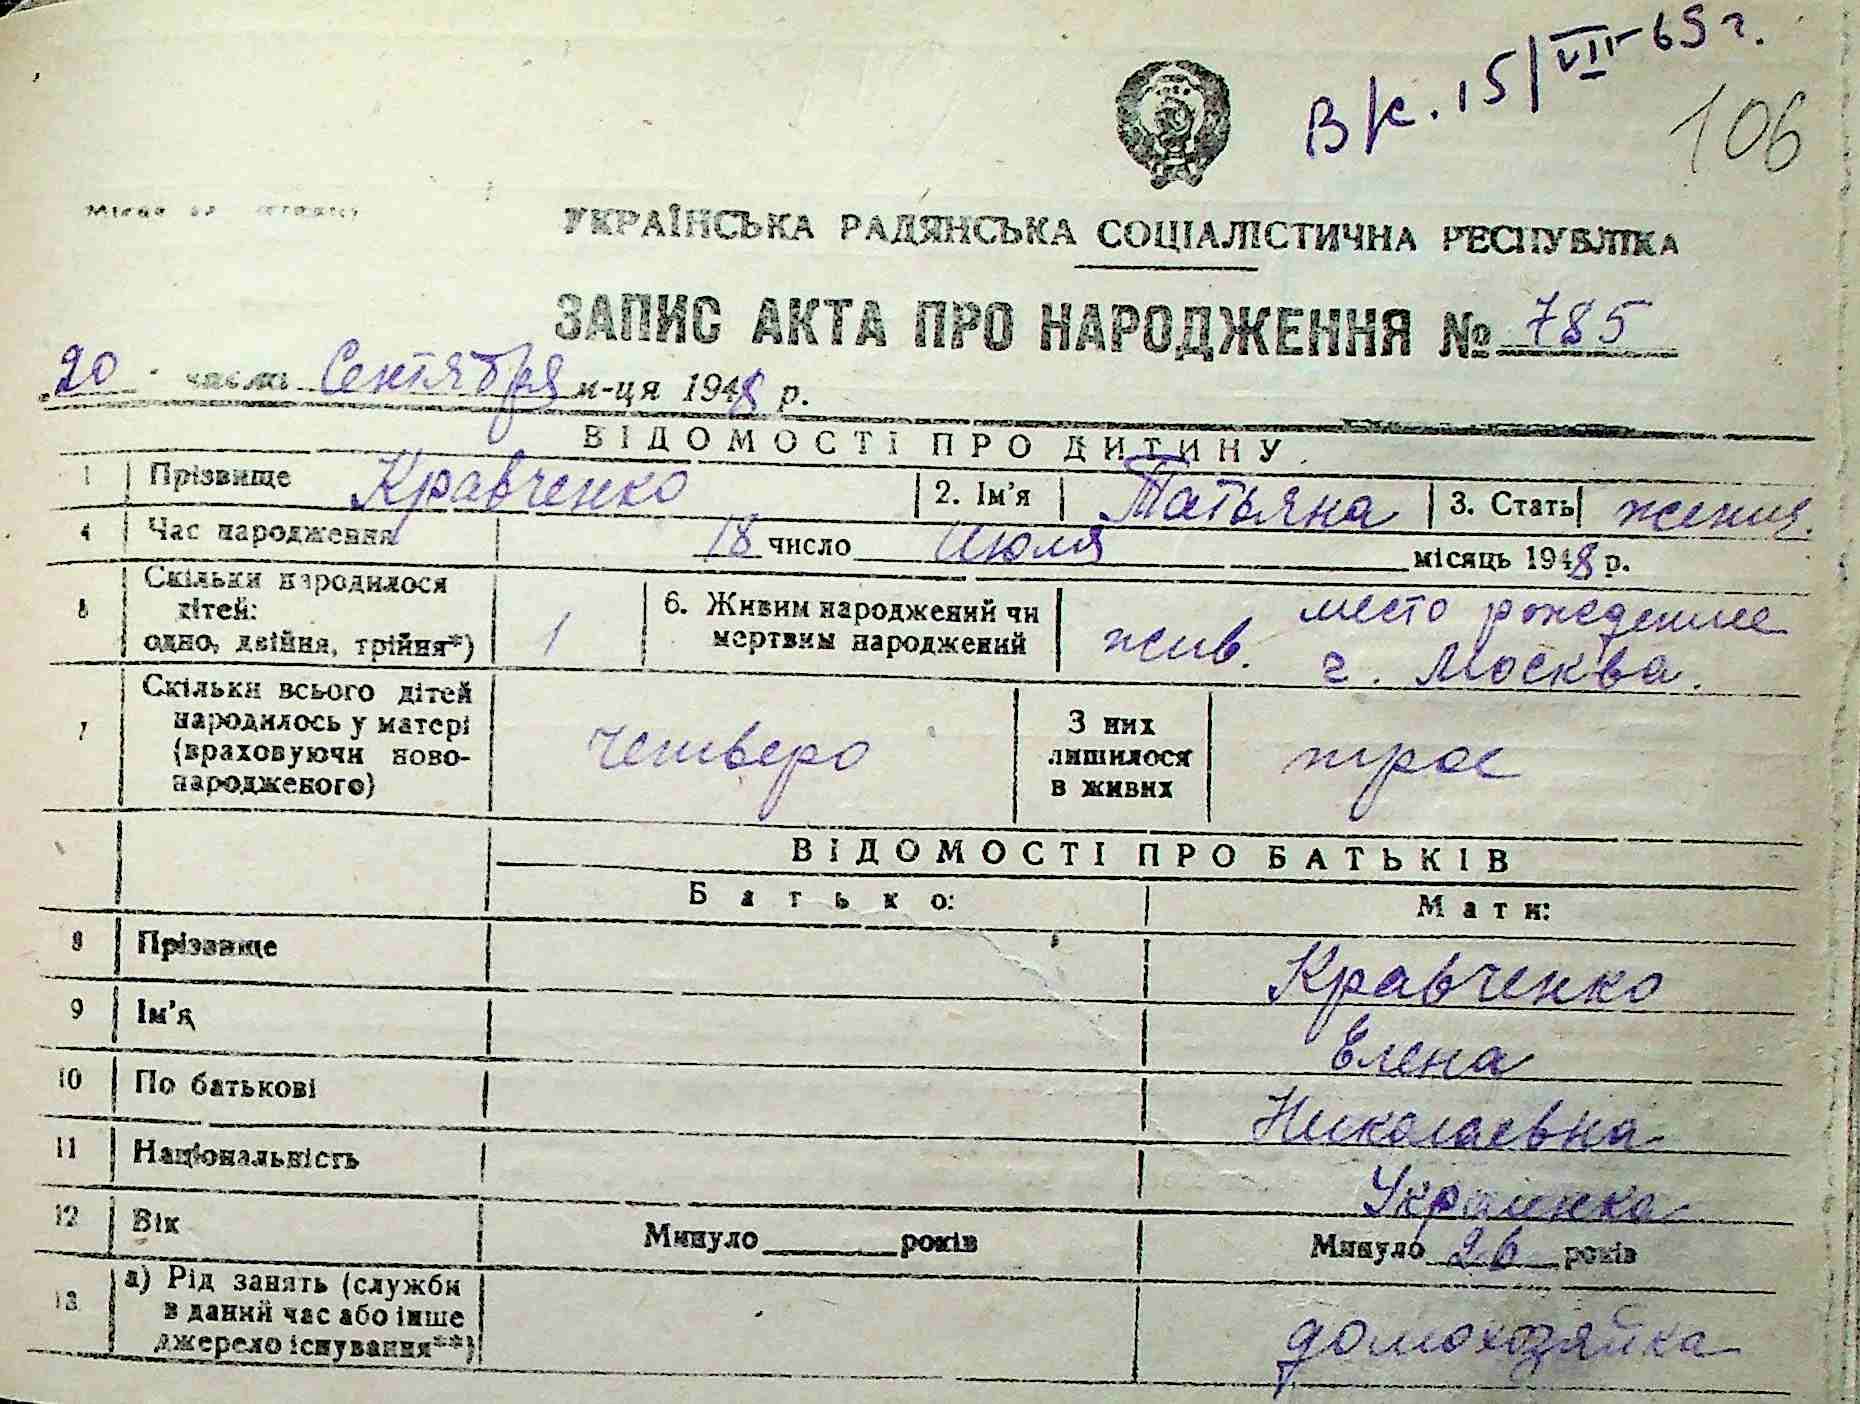 В/к. 15/VIII-69 г.
106
УКРАЇНСЬКА РАДЯНСЬКА СОЦІАЛІСТИЧНА РЕСПУБЛІКА
ЗАПИС АКТА ПРО НАРОДЖЕННЯ № 785
20 числа Сентября м-ця 1948 р.
ВІДОМОСТІ ПРО ДИТИНУ
1 Прізвище Кравченко 2. Ім'я Татьяна 3. Стать женск.
4 Час народження 18 число Июля місяць 1948 р.
5 Скільки народилося дітей: одно, двійня, трійня*) 1 6. Живим народжений чи мертвим народжений жив. место рождение г. Москва.
7 Скільки всього дітей народилось у матері (враховуючи новонародженого) четверо З них лишилося в живих трое
ВІДОМОСТІ ПРО БАТЬКІВ
Батько: Мати:
8 Прізвище Кравченко
9 Ім'я Елена
10 По батькові Николаевна
11 Національність Украинка
12 Вік Минуло ___ років Минуло 26 років
13 а) Рід занять (служби в даний час або інше джерело існування**) домохозяйка